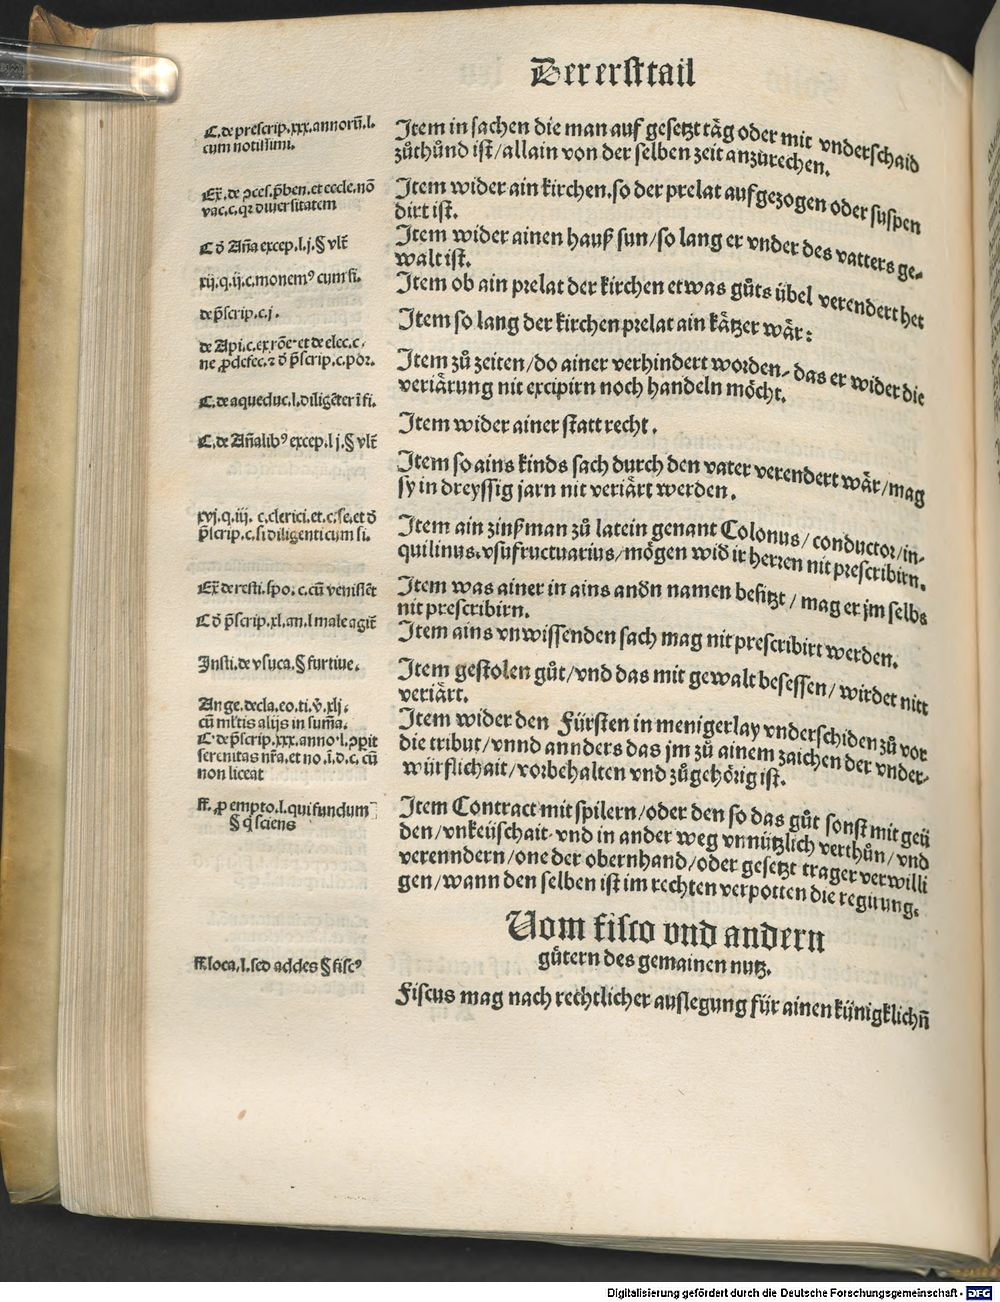 Der erst tail
C. de prescrip. xxx. annorū. l.
cum notissimi.
Item in sachen die man auf gesetzt täg oder mit vnderschaid
zůthůnd ist/allain von der selben zeit anzurechen.
Ex. de ꝓces. p̄ben. et eccle. nō
vac. c. qꝛ diuersitatem
Item wider ain kirchen. so der prelat aufgezogen oder suspen
dirt ist.
C ď Aña excep. l. j. § vlt̄
Item wider ainen hauß sun/so lang er vnder des vatters ge-
walt ist.
xij. q. ij. c. monemꝰ cum si.
Item ob ain prelat der kirchen etwas gůts übel verendert het
de p̄scrip. c. j.
Item so lang der kirchen prelat ain kätzer wär:
de Api. c. ex rōe. et de elec. c.
ne ꝓ defec. ⁊ ď p̄scrip. c. por.
Item zů zeiten/do ainer verhindert worden, das er wider die
veriärung nit excipirn noch handeln möcht.
C. de aqueduc. l. diligēter ī fi.
Item wider ainer statt recht.
C. de Añalibꝰ excep. l j. § vlt̄
Item so ains kinds sach durch den vater verendert wär/mag
sy in dreyssig jarn nit veriärt werden.
xvj. q. iij. c. clerici. et. c. se. et ď
p̄scrip. c. si diligenti cum si.
Item ain zinßman zů latein genant Colonus/conductor/in-
quilinus. vsufructuarius/mögen wid ir herren nit prescribirn.
Ex̄ de resti. spo. c. cū venissēt
Item was ainer in ains andn̄ namen besitzt/mag er jm selbs
nit prescribirn.
C ď p̄scrip. xl. an. l male agit̄
Item ains vnwissenden sach mag nit prescribirt werden.
Insti. de vsuca. § furtiue.
Item gestolen gůt/vnd das mit gewalt besessen/wirdet nitt
veriärt.
Ange. decla. eo. ti. v̄. xlj.
cū ml̄tis alijs in sum̄a.
C. de p̄scrip. xxx. anno. l. ꝓpit
serenitas nr̄a. et no. ī. d. c. cū
non liceat
Item wider den Fürsten in menigerlay vnderschiden zů vor
die tribut/vnnd annders das jm zů ainem zaichen der vnder-
würflichait/vorbehalten vnd zůgehörig ist.
ff. ꝓ empto. l. qui fundum
§ q̄ sciens
Item Contract mit spilern/oder den so das gůt sonst mit geü
den/vnkeüschait. vnd in ander weg vnnützlich verthůn/vnd
verenndern/one der obernhand/oder gesetzt trager verwilli
gen/wann den selben ist im rechten verpotten die regirung.
Vom fisco vnd andern
gütern des gemainen nutz.
ff. loca. l. sed addes § fiscꝰ
Fiscus mag nach rechtlicher auslegung für ainen künigklichn̄
Digitalisierung gefördert durch die Deutsche Forschungsgemeinschaft - DFG